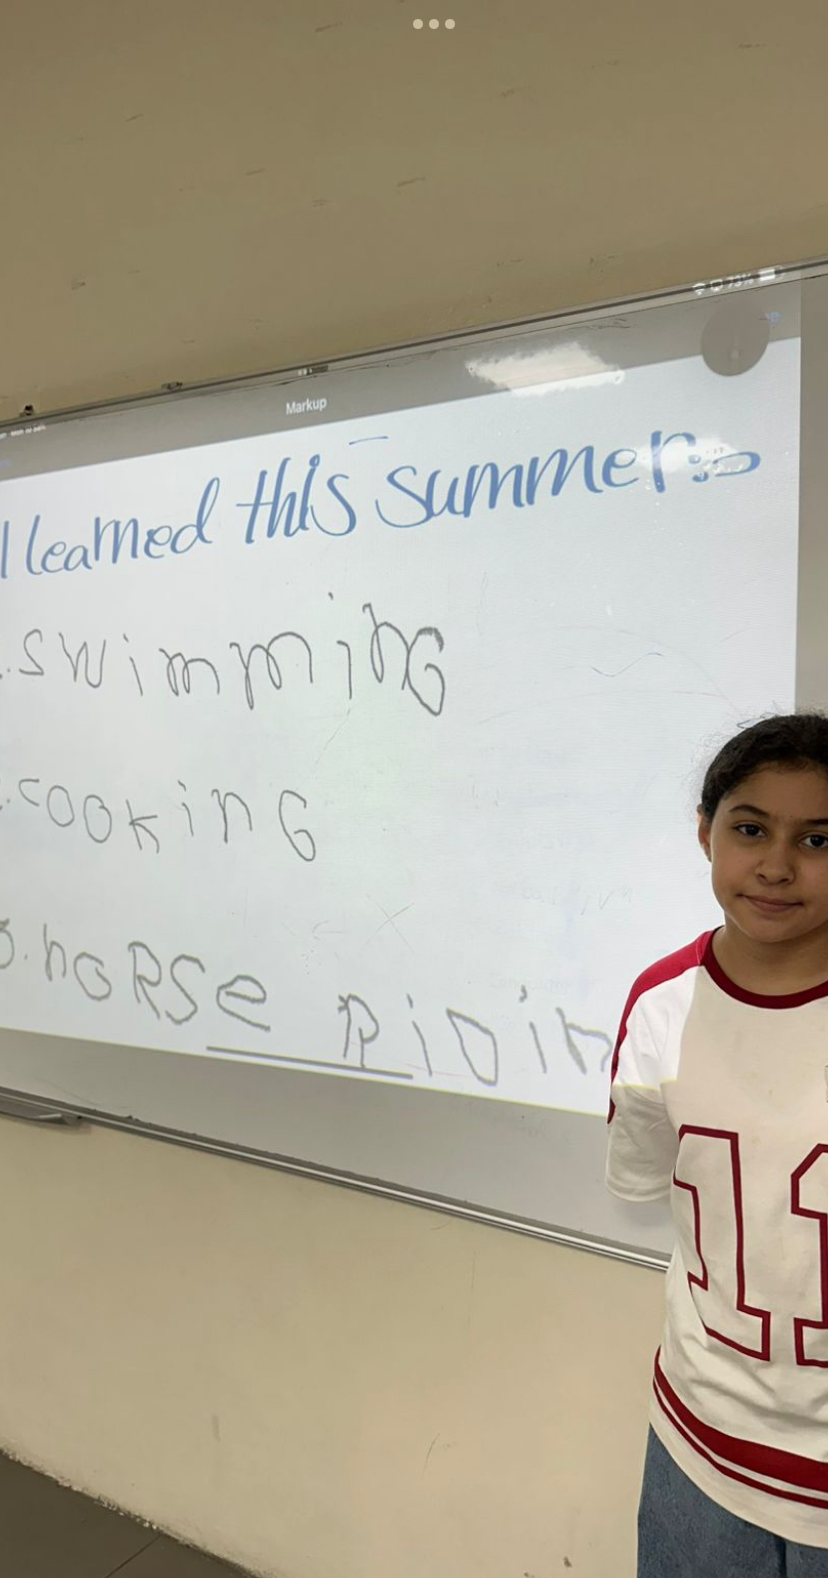 Markup
I learned this summer:
.swimming
.cooking
3.hoRse Ridin
11